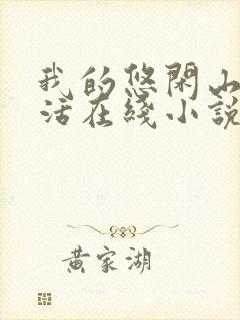 我的悠閑山
活在綫小說
黄家湖